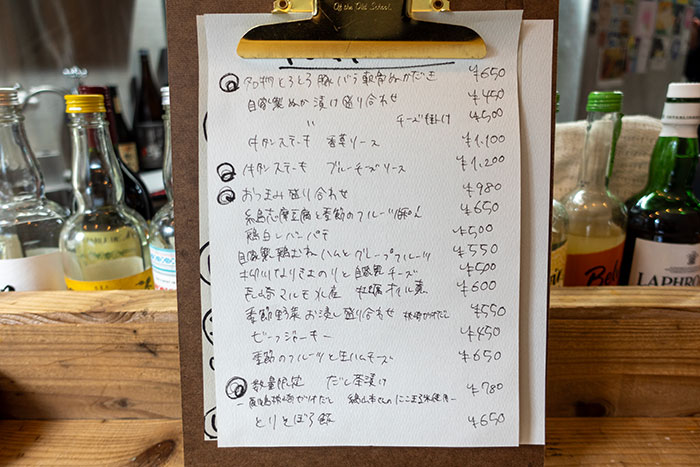 Off the Old School.
名物とろとろ豚バラ軟骨ぬかだき ¥650
自家製ぬか漬け盛り合わせ ¥450
〃 チーズ掛け ¥500
牛タンステーキ 香草ソース ¥1,100
牛タンステーキ ブルーチーズソース ¥1,200
おつまみ盛り合わせ ¥980
糸島志摩豆腐と季節のフルーツ ¥650
鶏白レバーパテ ¥500
自家製鶏むねハムとグレープフルーツ ¥550
柳川なりきよのりと自家製チーズ ¥500
長崎マルモ水産 牡蠣オイル煮 ¥600
季節野菜お浸し盛り合わせ 枕崎かつおだし ¥550
ビーフジャーキー ¥450
季節のフルーツと生ハムチーズ ¥650
数量限定 だし茶漬け ¥780
ー鹿児島枕崎かつおだし にこまる米使用ー
とりそぼろ飯 ¥650
LAPHRO